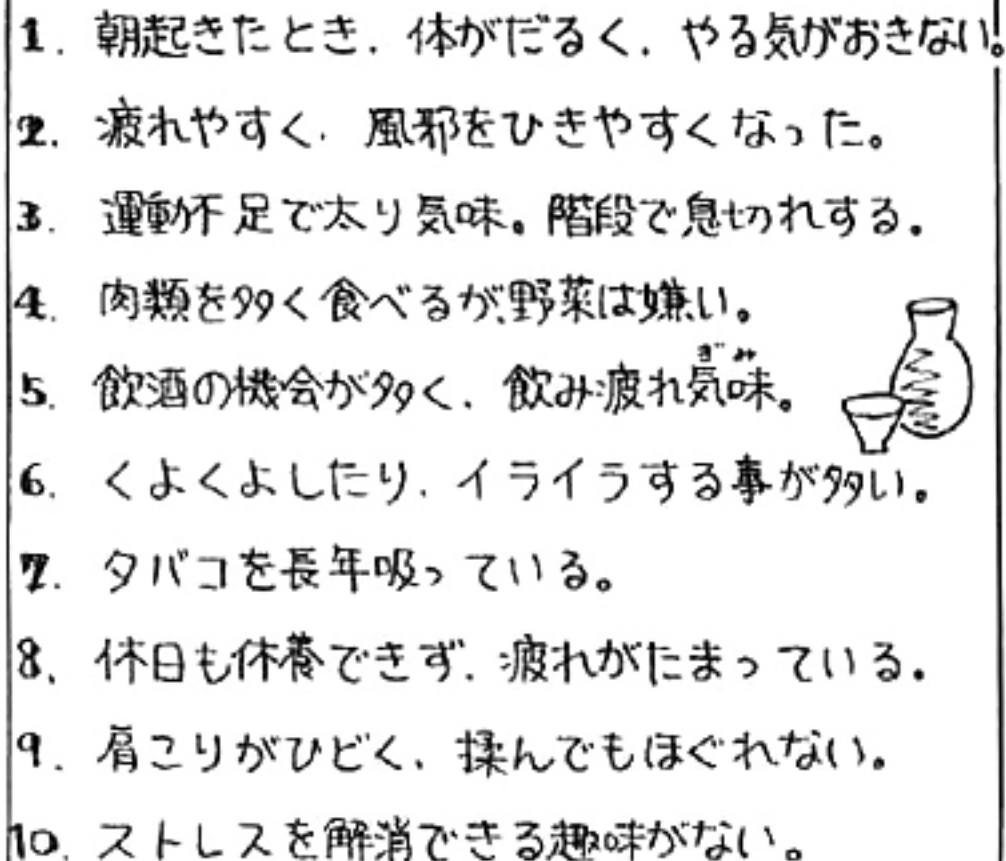 1. 朝起きたとき、体がだるく、やる気がおきない。
2. 疲れやすく、風邪をひきやすくなった。
3. 運動不足で太り気味。階段で息切れする。
4. 肉類を多く食べるが、野菜は嫌い。
5. 飲酒の機会が多く、飲み疲れ気味。
ぎみ
6. くよくよしたり、イライラする事が多い。
7. タバコを長年吸っている。
8. 休日も休養できず、疲れがたまっている。
9. 肩こりがひどく、揉んでもほぐれない。
10. ストレスを解消できる趣味がない。